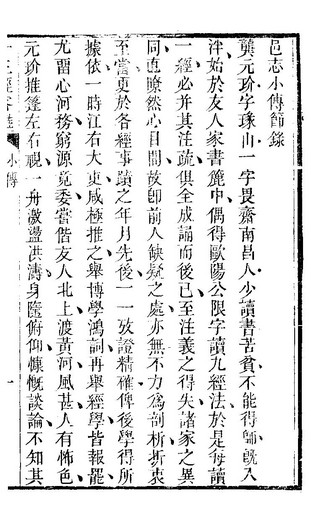 邑志小傳節錄
龔元玠字瑑山一字畏齋南昌人少讀書苦貧不能得師旣入
泮始於友人家書簏中偶得歐陽公限字讀九經法於是每讀
一經必并其注疏俱全成誦而後已至注義之得失諸家之異
同直瞭然心目間故卽前人缺疑之處亦無不力為剖析折衷
至當更於各經事蹟之年月先後一一攷證精確俾後學得所
據依一時江右大吏咸極推之舉博學鴻詞再舉經學皆報罷
尤畱心河務窮源竟委嘗偕友人北上渡黃河風甚人有怖色
元玠推篷左右視一舟激盪洪濤身隨俯仰慷慨談論不知其
十三經客難
小傳
一